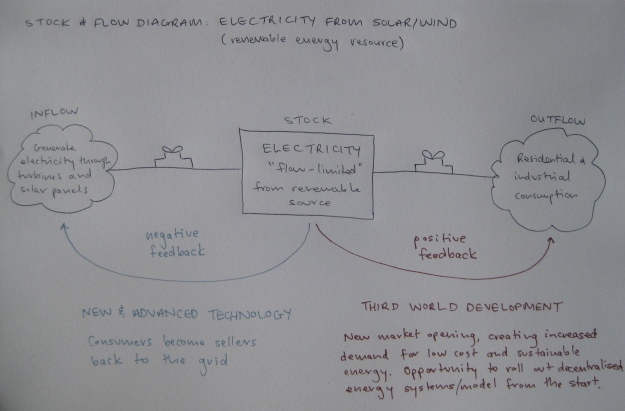 STOCK & FLOW DIAGRAM: ELECTRICITY FROM SOLAR/WIND
(renewable energy resource)
INFLOW
Generate
electricity through
turbines and
solar panels
STOCK
ELECTRICITY
"flow-limited"
from renewable
source
OUTFLOW
Residential &
industrial
consumption
negative
feedback
positive
feedback
NEW & ADVANCED TECHNOLOGY
Consumers become sellers
back to the grid
THIRD WORLD DEVELOPMENT
New market opening, creating increased
demand for low cost and sustainable
energy. Opportunity to roll out decentralised
energy systems/model from the start.